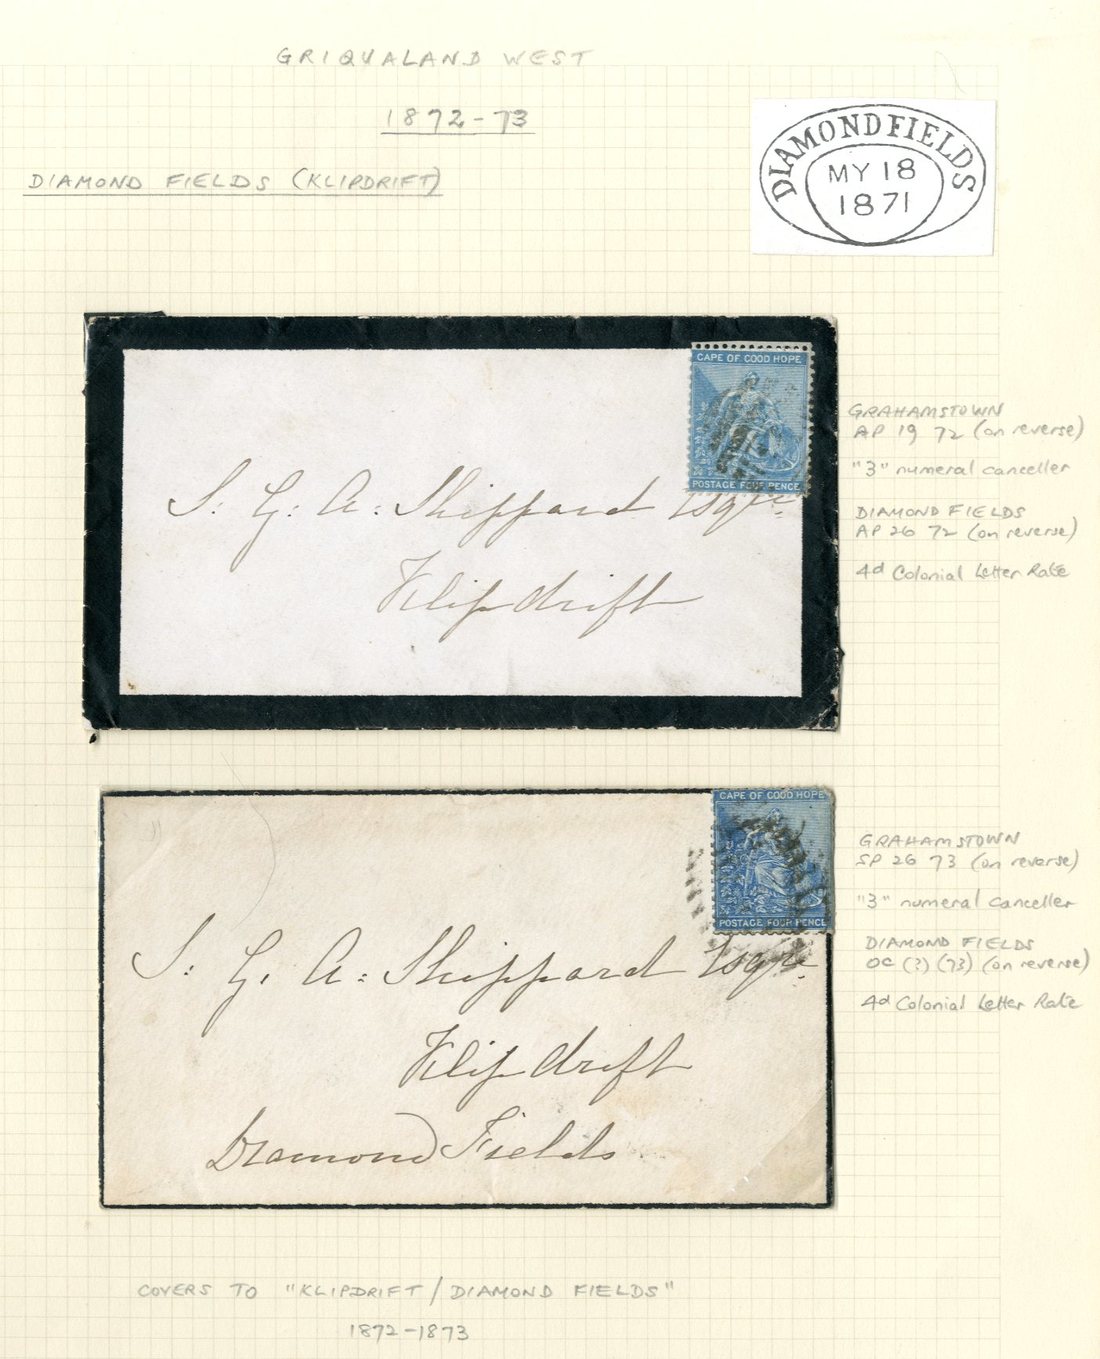 GRIQUALAND WEST
1872-73
DIAMOND FIELDS (KLIPDRIFT)
DIAMOND FIELDS
MY 18
1871
CAPE OF GOOD HOPE
POSTAGE FOUR PENCE
S. G. A. Shippard Esqre.
Klipdrift
GRAHAMSTOWN
AP 19 72 (on reverse)
"3" numeral canceller
DIAMOND FIELDS
AP 26 72 (on reverse)
4d Colonial Letter Rate
CAPE OF GOOD HOPE
POSTAGE FOUR PENCE
S. G. A. Shippard Esqre.
Klipdrift
Diamond Fields
GRAHAMSTOWN
SP 26 73 (on reverse)
"3" numeral canceller
DIAMOND FIELDS
OC (?) (73) (on reverse)
4d Colonial Letter Rate
COVERS TO "KLIPDRIFT/DIAMOND FIELDS"
1872-1873